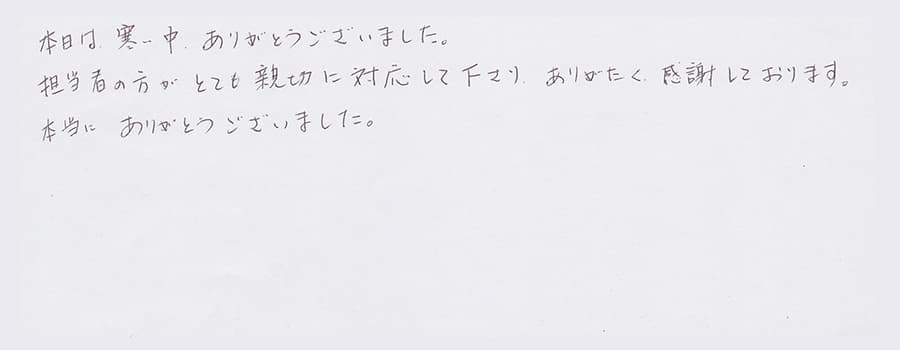 本日は、寒い中、ありがとうございました。
担当者の方が とても 親切に 対応して下さり、ありがたく、感謝しております。
本当に ありがとうございました。